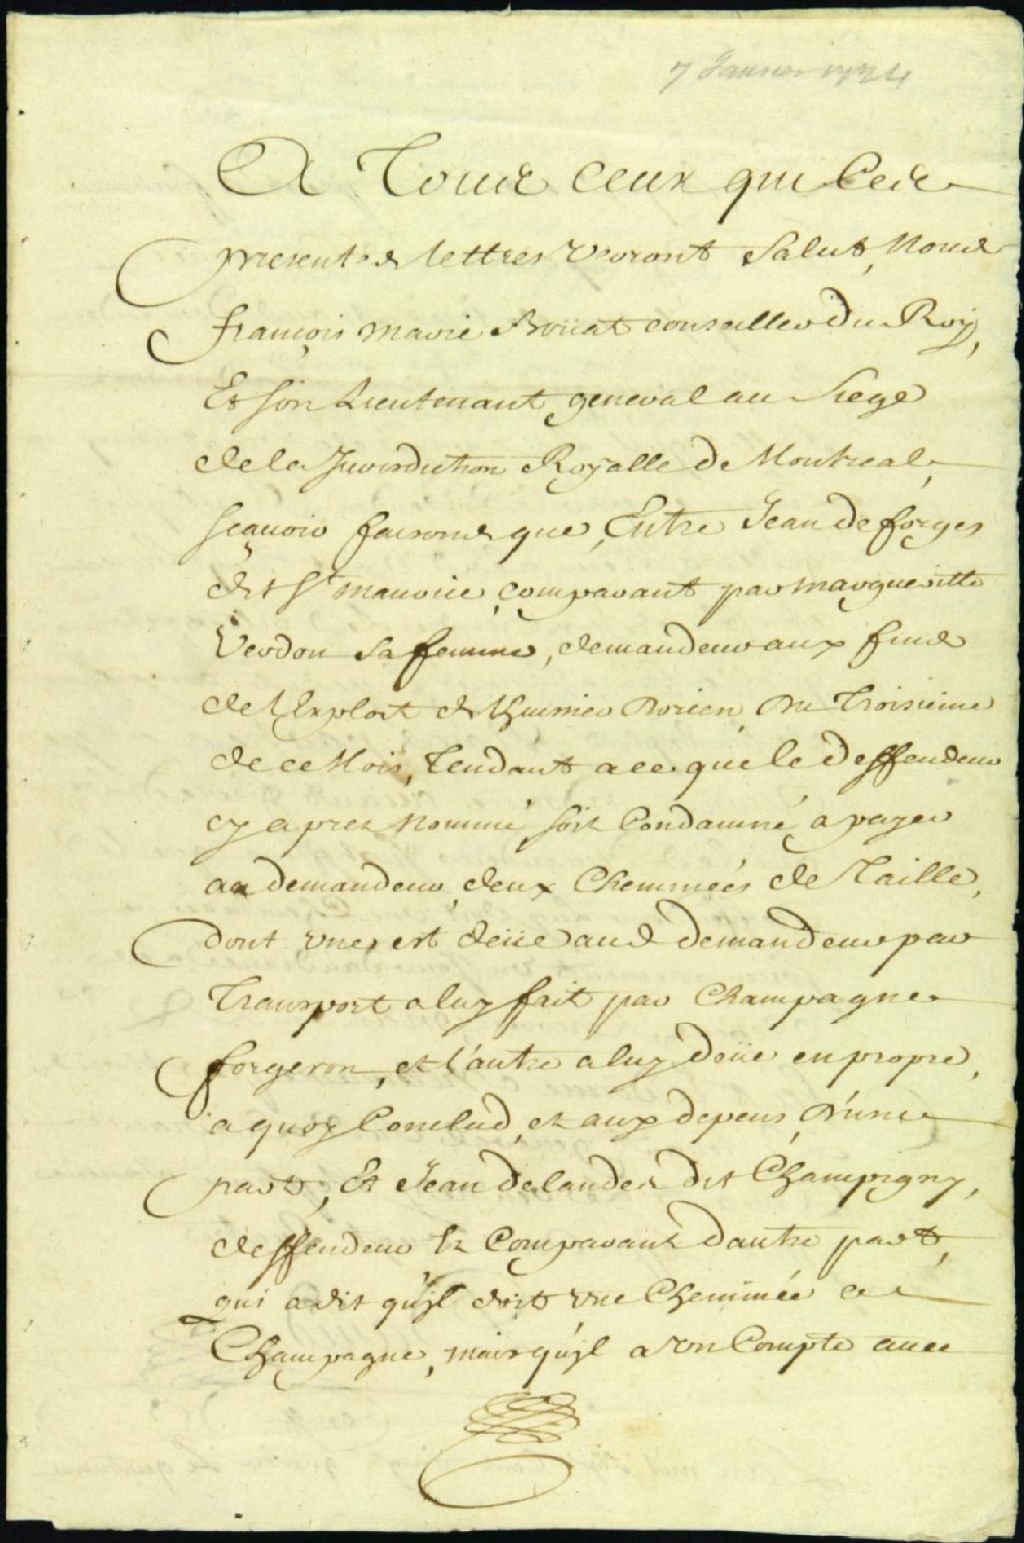 7 Janvier 1724
A Tous ceux qui Ces
presentes lettres veront Salut, Nous
françois marie Boüat conseiller du Roy,
Et son Lieutenant general au Siege
de la Jurisdiction Royalle de Montreal,
sçavoir faisons que, Entre Jean deforges
dit St maurice, comparant par margueritte
Verdon sa femme, demandeur aux fins
de l'Exploit de lhuissier Dorien, Du Troisieme
de ce Mois, Tendant a ce que le deffendeur
cy apres Nommé, soit Condamné, a payer
au demandeur, deux Cheminées de Taille,
dont une est deüe aud demandeur par
Transport a luy fait par Champagne
forgeron, et l'autre a luy deüe en propre,
a quoy Conclud, et aux depens, D'une
part, Et Jean deslandes dit Champigny,
deffendeur Et Comparant d'autre part,
qui a dit qu'jl doit une Cheminée a
Champagne, mais qu'jl a son Compte avec